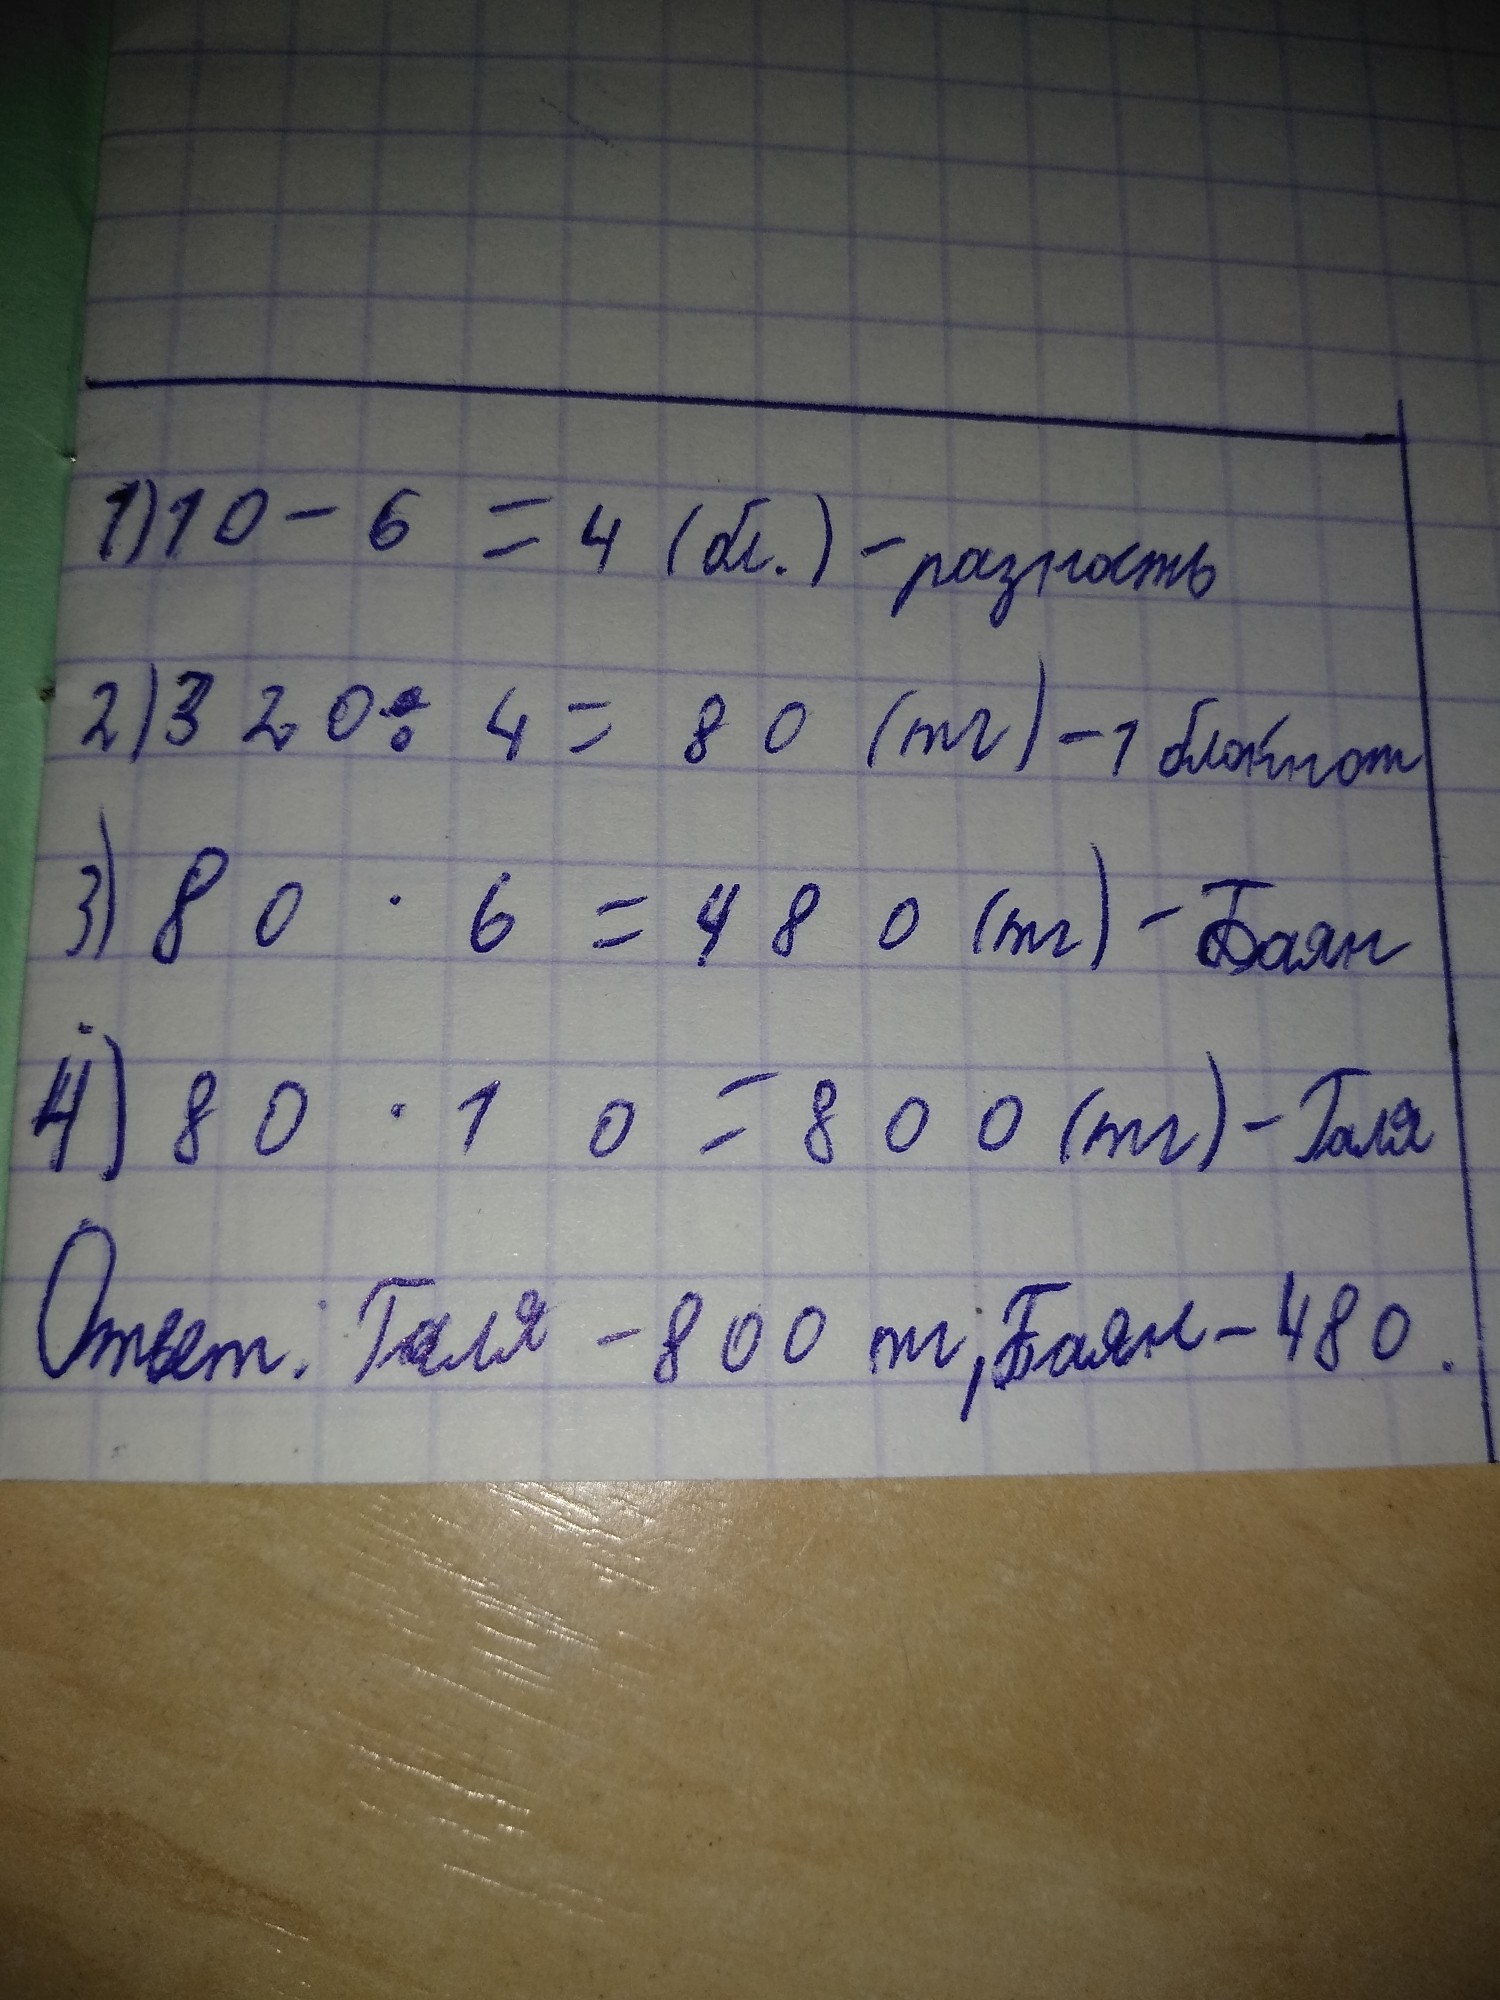 1) 10 - 6 = 4 (бл.) - разность
2) 320 : 4 = 80 (тг) - 1 блокнот
3) 80 · 6 = 480 (тг) - Баян
4) 80 · 10 = 800 (тг) - Галя
Ответ: Галя - 800 тг, Баян - 480.